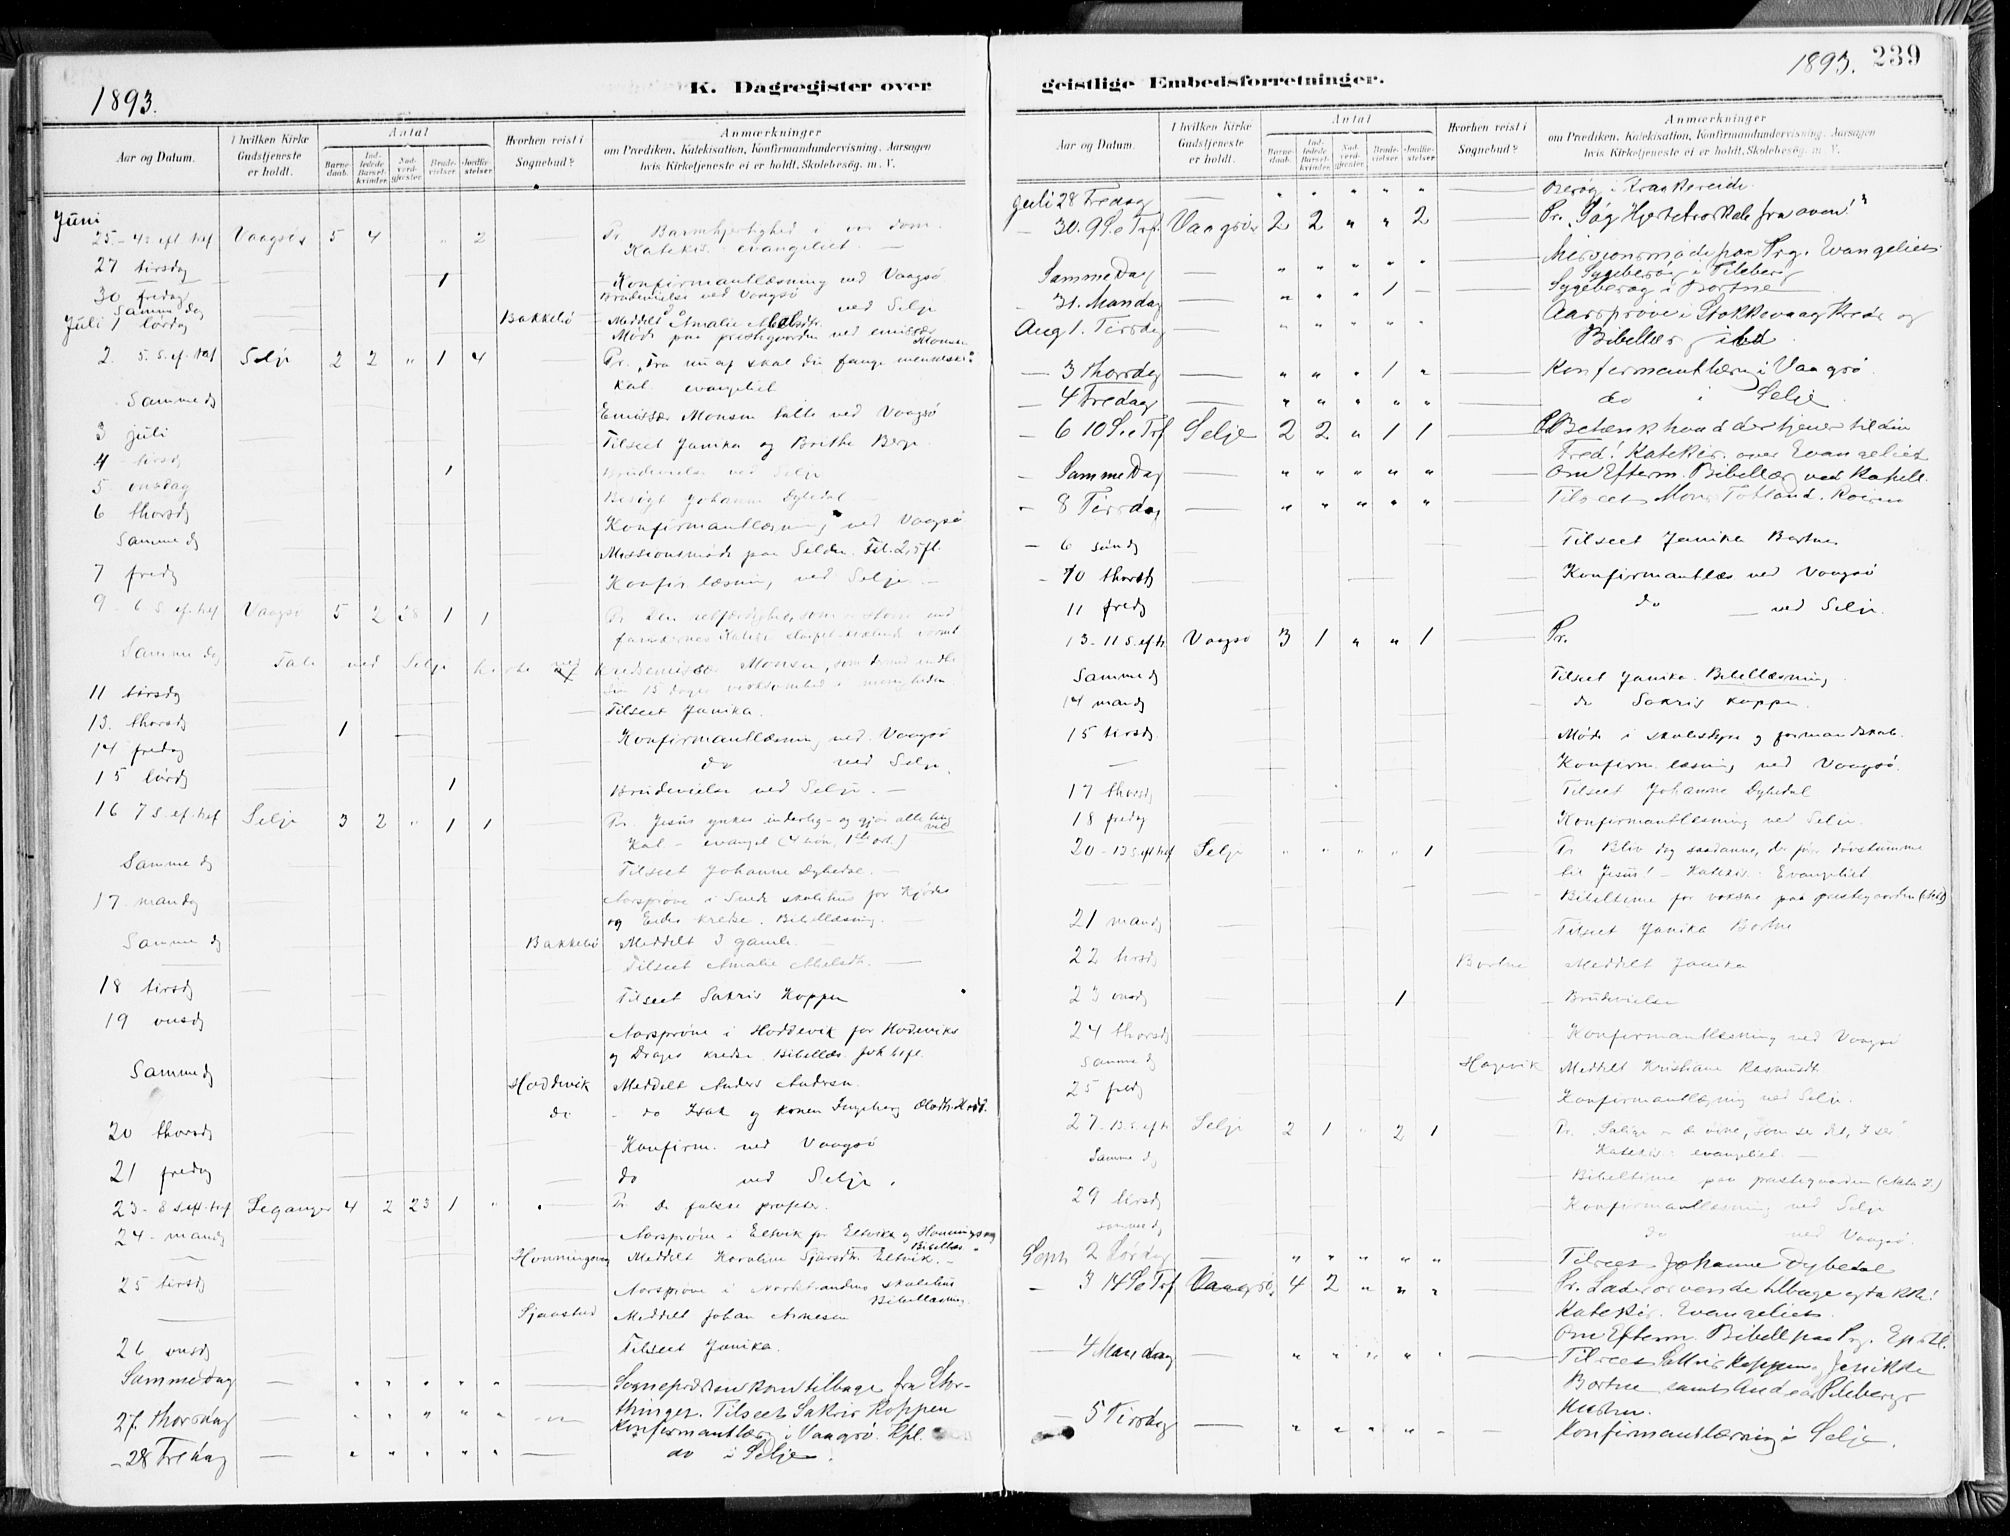 1893.
K. Dagregister over
Aar og Datum.
I hvilken Kirke Gudstjeneste er holdt.
Antal
Barnedaab.
Indledede Barselkvinder.
Nadverdgjæster
Brudevielser
Jordfæstelser
Hvorhen reist i Sognebud?
Anmærkninger
om Prædiken, Katekisation, Konfirmandundervisning, Aarsagen
hvis Kirketjeneste ei er holdt, Skolebesøg. m. V.
Juni
25 - 4 s. eft tref Vaagsø 5 4 " 2 Pr. Barmhjertighed i vor dom.
Katekis. evangeliet. —
27 tirsdag Konfirmantlæsning ved Vaagsø
30 fredag 1 Brudevielse ved Vaagsø
Samme dag ved Selje
Juli 1 lørdag Bakkebø Meddelt Amalie Abelsdtr.
Møde paa prestegaarden ved emissær Monsen
2. 5. s. ef. tref Selje 2 2 " 1 4 Pr. "Fra nu af skal du fange mennesker"
Kat. evangeliet
Samme dg Emissær Monsen talte ved Vaagsø
3 juli Tilseet Janika og Brithe Berge
4 tirsd 1 Brudevielse ved Selje
5 onsdag Besøgt Johanne Dybedal —
6 thorsdg Konfirmantlæsning ved Vaagsø
Samme dg Missionsmøde paa Silden.
7 fredg Konfirlæsning ved Selje —
9 - 6 s. ef. tref Vaagsø 5 2 28 1 1 Pr. Den retfærdighed, som er større end
Samme dag Tale ved Selje kirke ved Kredsemissær Monsen, som dermed endte
sin 15 dages virksomhed i menigheden.
11 tirsdg Tilseet Janika.
13. thorsdg 1 Konfirmantlæsning ved Vaagsø
14 fredag do ved Selje.
15 lørdg 1 Brudevielse ved Selje. —
16 7 s. ef. tref Selje 3 2 " 1 1 Pr. Jesus ynkes inderlig - og gjør alle ting vel
Kat - evangel (4 bøn, 1ste art.)
Samme dg Tilseet Johanne Dybedal. —
17 - mandag Aarsprøve i skolehus for
og Eides kreds. Bibellæsning. —
Samme dg Bakkebø Meddelt 3 gamle. —
Tilseet Amalie Abelsdtr. —
18 tirsdg Tilseet Sakris Koppen
19 onsdg Aarsprøve i Hoddevik for Hodeviks
og Drages kredse. Bibellæs.
Samme dg Hoddevik Meddelt Anders Andersen.
do - do Isak og konen Ingeborg Hodd.
20 thorsdg Konfirm. ved Vaagsø
21 fredag do ved Selje.
23 - 8 s eft. tref Leganger 4 2 23 1 " Pr. De falske profeter.
24 - mandg Aarsprøve i Eltvik for Eltviks og Honningsvaag
Bibellæs.
Honningsvaag Meddelt Karoline Sjursdtr Eltvik. —
25 tirsdg Aarsprøve i Nordstrandens skolehus
Bibellæsning
Sjaastad Meddelt Johan Arnesen
26 onsdg Tilseet Janika.
Samme dag — " " " " " — Sognepræsten kom tilbage fra Stor-
27. thorsdag — " " " " " — thinget. Tilseet Sakris Koppen
Konfirmantlæsn. i Vaagsø. Kpl.
- 28 Fredag — " " " " " — do i Selje.
1893. 239
geistlige Embedsforretninger.
Aar og Datum.
I hvilken Kirke Gudstjeneste er holdt.
Antal
Barnedaab.
Indledede Barselkvinder.
Nadverdgjæster
Brudevielser
Jordfæstelser
Hvorhen reist i Sognebud?
Anmærkninger
om Prædiken, Katekisation, Konfirmandundervisning, Aarsagen
hvis Kirketjeneste ei er holdt, Skolebesøg. m. V.
Juli 28 Fredag — " " " " " — besøg i Krankereide.
- 30. 9 S. e Trf. Vaagsø 2 2 " " 2 — Pr. "Søg Hjertets Skole fra oven!"
Samme Dag — " " " " " Missionsmøde paa Prg. Evangeliet
Sygebesøg i Fileberg
- 31. Mandag — " " " 1 — Sygebesøg i Bortne
Aug 1. Tirsdag — " " " " " — Aarsprøve i Stokkevaag Kreds og
Bibellæsg ibd
- 3 thorsdag — " " " 1 " — Konfirmantlæsn i Vaagsø
- 4 Fredag — " " " " " — do i Selje
- 6 10 S. e Trf Selje 2 2 " 1 1 — Pr. Betænk hvad der tjener til din
Fred! Katekis. over Evangeliet
Samme Dag " " " " " Om Efterm. Bibellæsg ved Kapell.
- 8 Tirsdag — " " " " " — Tilseet Mons Totland.
- 6 Søndg Tilseet Janika Bortne
- 10 thorsdg Konfirmantlæs ved Vaagsø
11 fredg do — ved Selje.
13 - 11 S. efter Vaagsø 3 1 " " 1 — Pr.
Samme dg Tilseet Janika. Bibellæsning.
14 mandg do Sakris Koppen.
15 tirsdg Møde i skolestyre og formandskab.
— Konfirm. læsning ved Vaagsø.
17 thorsdg Tilseet Johanne Dybedal
18 fredag Konfirmantlæsning ved Selje.
20 - 12 S. eft tref Selje " " " " 1 Pr Bliv dog saadanne, der fører døvstumme
til Jesus! - Katekis. Evangeliet
Bibeltime for voksne paa prestegaarden
21 mandg Tilseet Janika Bortne
22 tirsdg Bortne Meddelt Janika
23 onsdg 1 Brudevielse
24 thorsdg Konfirmantlæsning ved Vaagsø
Samme dg Hagevik Meddelt Kristiane Rasmusdt.
25 fredg Konfirmantlæsning ved Selje.
27 - 13 S. eft Selje 2 1 " 2 1 Pr. "Salige er de øine, som ser det, I ser"
Katekis: evangeliet. —
Samme dg Bibeltime paa prestegaarden
29 tirsdg Konfirmantlæsning ved Selje
samme dg do ved Vaagsø.
Septr 2 Lørdag — " " " " " Tilseet Johanne Dybedal
- 3 14 S e Trf Vaagsø 4 2 " " " — Pr. Lader os vende tilbage og takke!
Katekis. Evangeliet.
Om Efterm. Bibell paa Prg.
- 4 Mandag — " " " " " — Tilseet Sakris Koppen, Jenikke
Bortne samt Andreas Pilebergs
Hustru.
- 5 Tirsdag — " " " " " — Konfirmantlæsning i Selje.